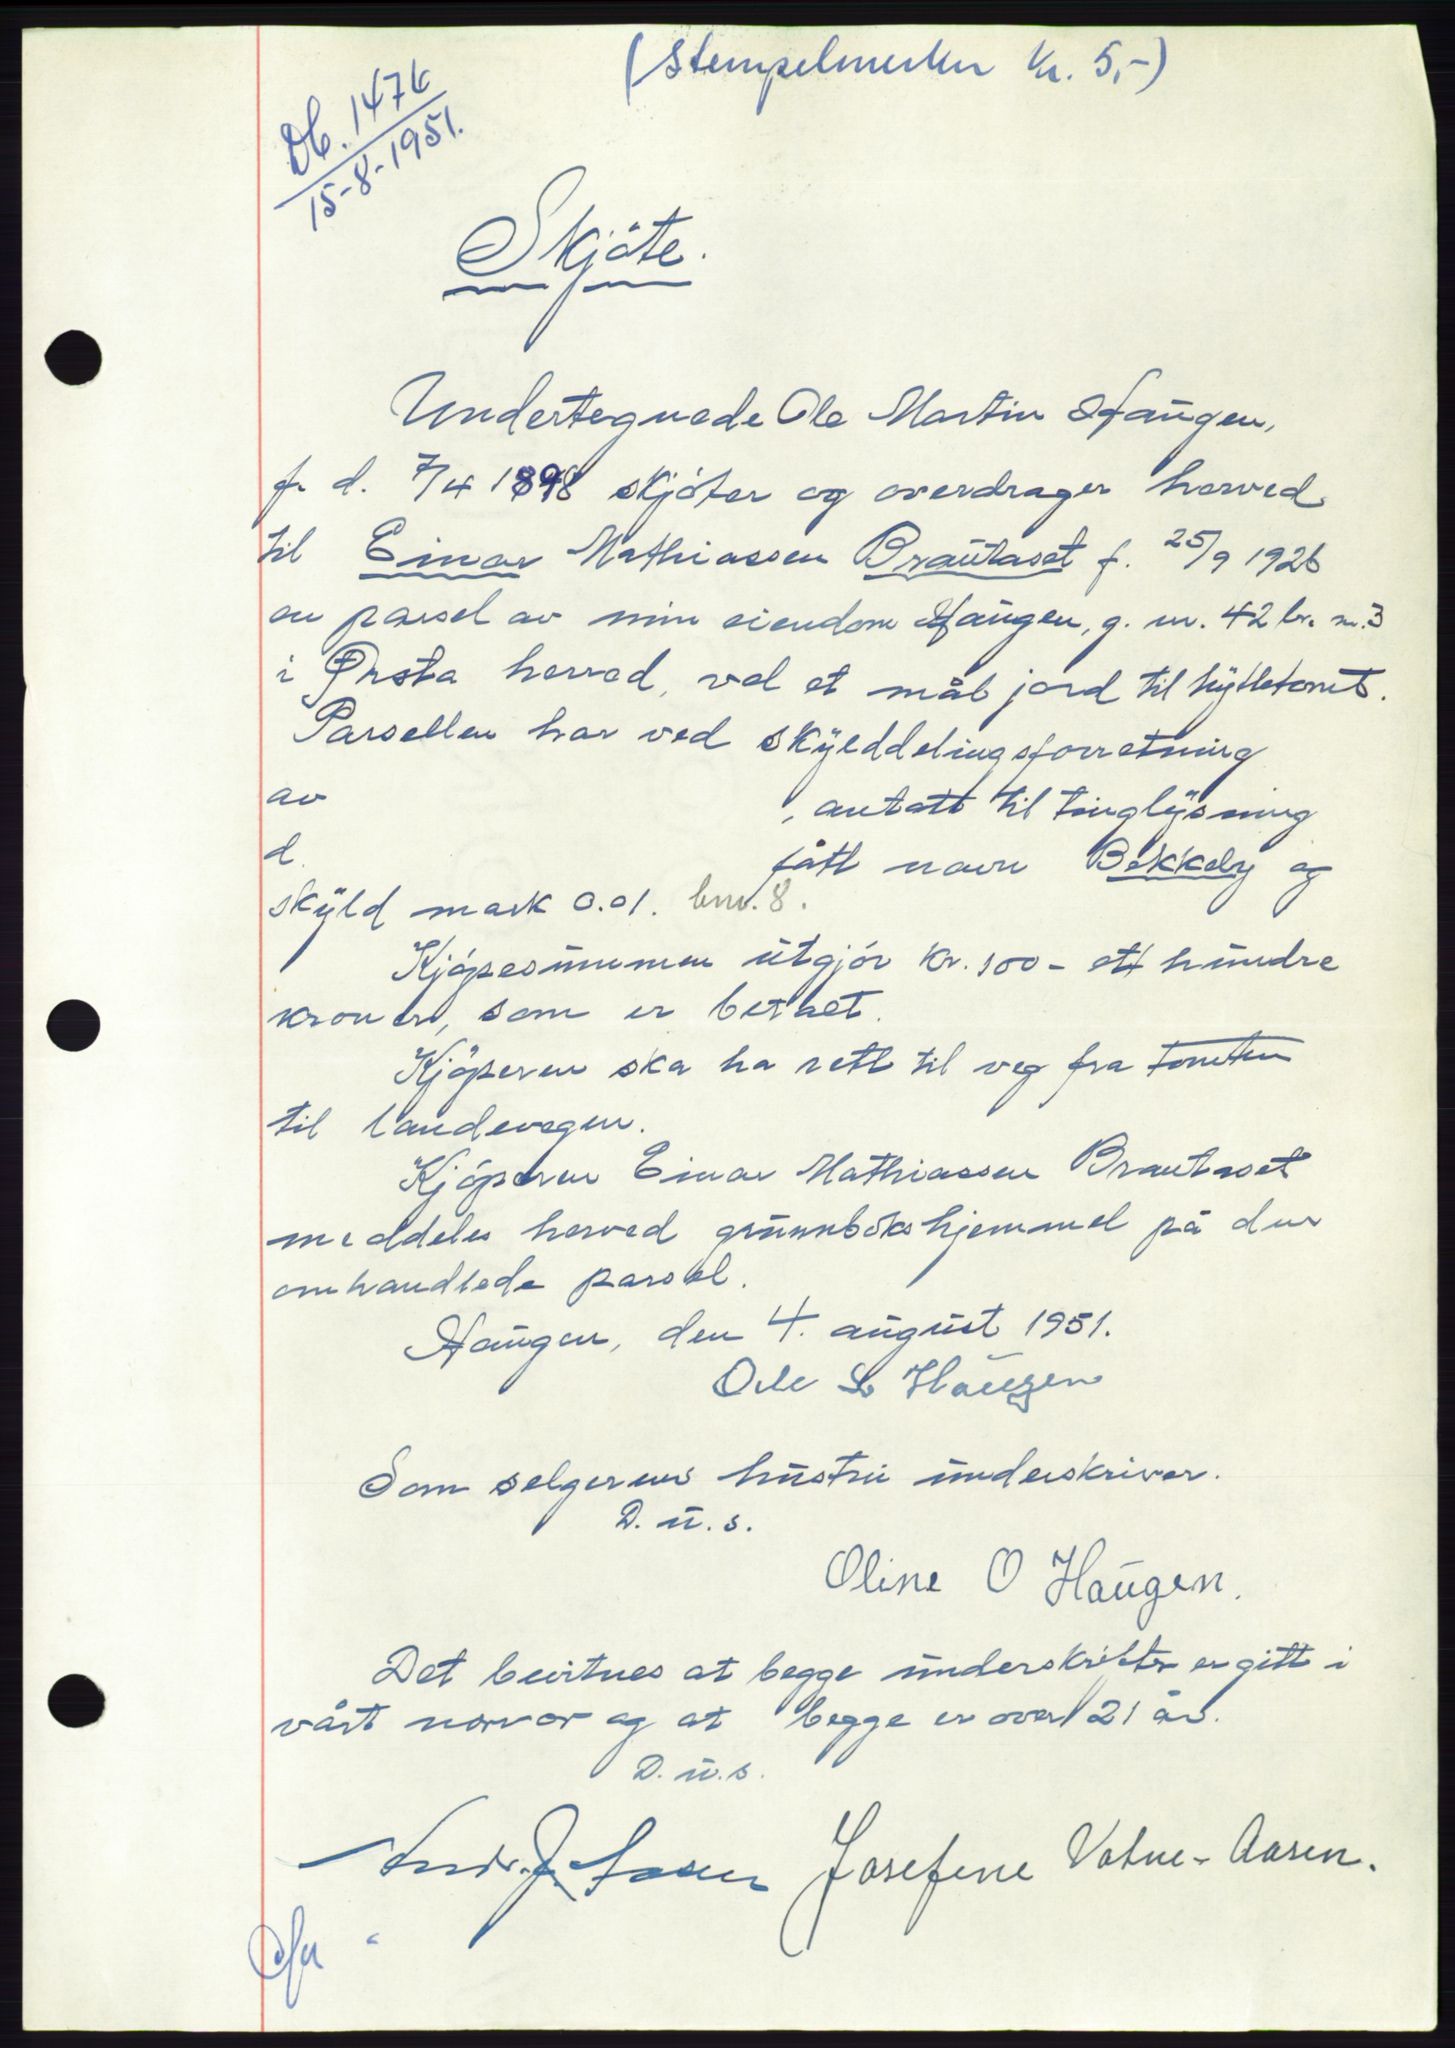 (Stempelmerker kr. 5,-)
Db. 1476
15-8-1951.
Skjöte.
Undertegnede Ole Martin Haugen,
f. d. 7/4 1898 skjöter og overdrager herved
til Einar Mathiassen Brautaset f. 25/9 1926
en parsel av min eiendom Haugen, g. nr. 42 br. nr. 3
i Ørsta herred, vel et mål jord til hyttetomt.
Parsellen har ved skylddelingsforretning
av , antatt til tinglysning
d. fått navn Bekkely og
skyld mark 0.01. bnr. 8.
Kjöpesummen utgjör kr. 100- ett hundre
kroner, som er betalt.
Kjöperen ska ha rett til veg fra tomten
til landevegen.
Kjöperen Einar Mathiassen Brautaset
meddeles herved grunnbokshjemmel på den
omhandlede parsel.
Haugen, den 4. august 1951.
Ole Haugen
Som selgerens hustru underskriver.
D. u. s.
Oline O Haugen.
Det bevitnes at begge underskrifter er gitt i
vårt nærvær og at begge er over 21 år.
D. u. s.
J. Aasen Josefine Vatne-Aasen.